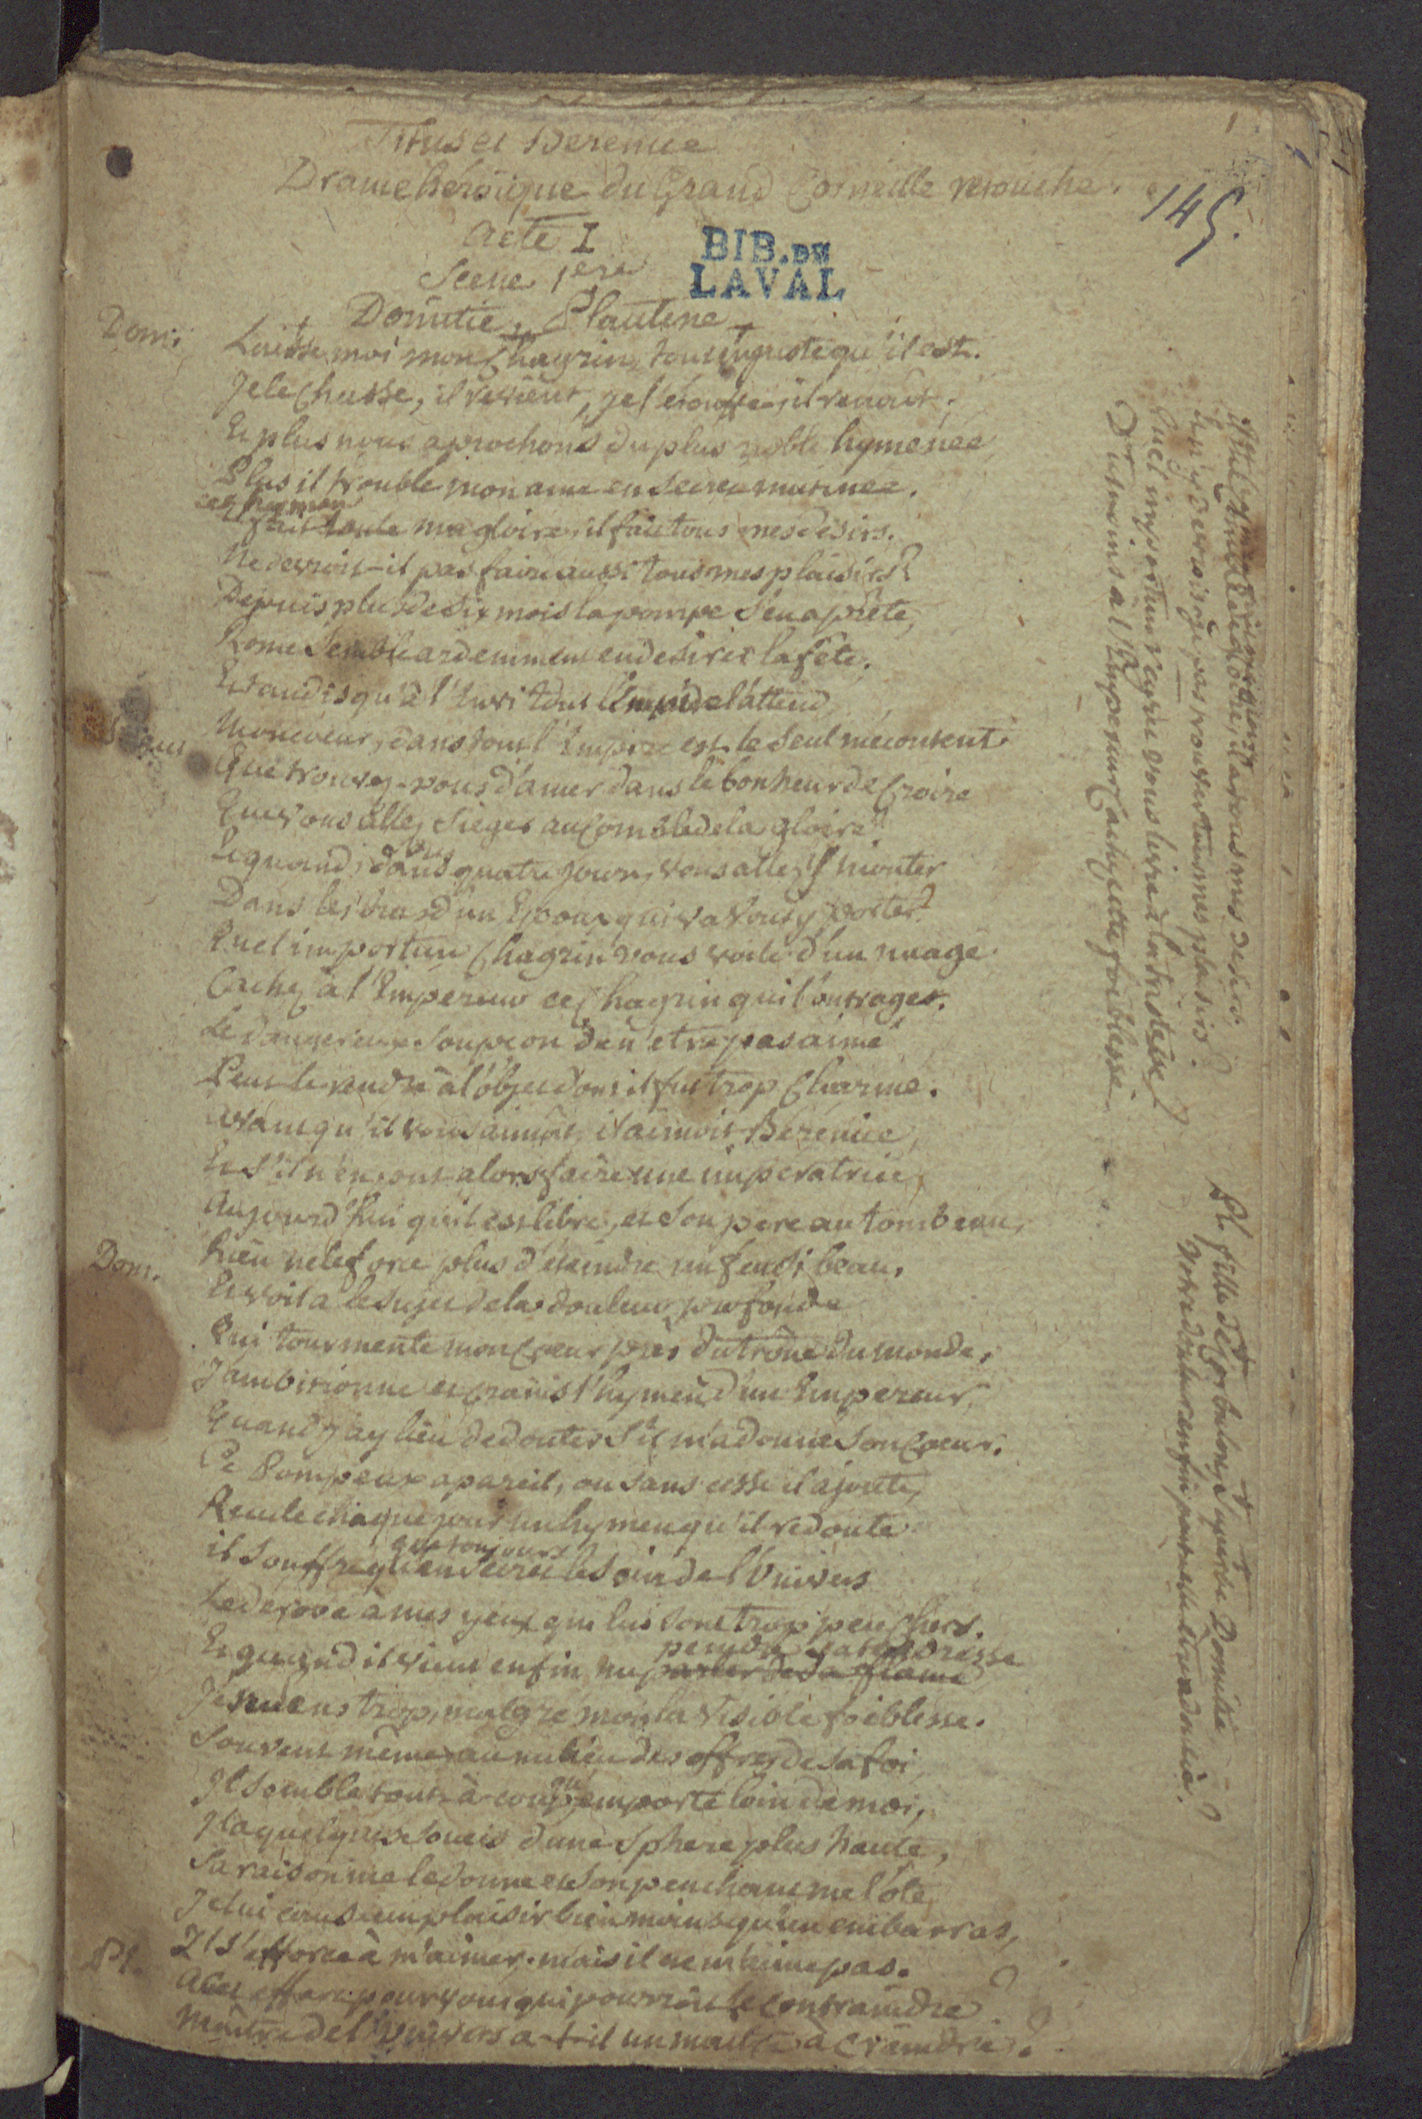 145.
Titus et Berenice
Drame heroïque du Grand Corneille retouché.
Acte I
Scene 1ere
BIB. DE
LAVAL
Domitie, Plautine
Dom. Laisse moi mon chagrin, tout injuste qu'il est.
Je le chasse, il revient, je l'etouffe, il renait.
Et plus nous aprochons du plus noble hymenée
Plus il trouble mon ame en secret mutinée.
cet hymen
fait toute ma gloire, il fait tous mes desirs.
Ne devroit-il pas faire aussi tous mes plaisirs?
Depuis plus de six mois la pompe s'en aprête,
Rome semble ardemment en desirer la fête.
Et tandis qu'à l'envi tout l'Empire l'attend
Mon coeur, dans tout l'Empire est le seul mécontent.
Que trouvez-vous d'amer dans le bonheur de croire
Que vous allez sieger au comble de la gloire?
Et quand, dans quatre jours, vous allez y monter
Dans les bras d'un Epoux qui va vous y porter?
Quel importun chagrin vous voile d'un nuage
Cachez à l'Empereur ce chagrin qui l'outrage.
Le dangereux soupçon de n'etre pas aimé
Peut le rendre à l'objet dont il fut trop charmé.
Avant qu'il vous aimât, il aimoit Berenice,
Et s'il n'en put alors faire une imperatrice,
Aujourd'hui qu'il est libre, et son pere au tombeau,
Rien ne le force plus d'éteindre un feu si beau.
Dom. Et voila le sujet de la douleur profonde
Qui tourmente mon coeur près du trône du monde.
J'ambitionne et crains l'hymen d'un Empereur,
Quand j'ay lieu de douter s'il m'a donné son coeur.
Ce Pompeux apareil, ou sans cesse il ajoute,
Recule chaque jour un hymen qu'il redoute
que toujours
il souffre qu'en secret le soin de l'Univers
Le derobe à mes yeux qui lui sont trop peu chers.
peindre sa tendresse
Et quand il vient enfin me parler de sa flame
Je sens trop, malgré moi, sa visible foiblesse.
Souvent même au milieu des offres de sa foi,
Il semble tout à coup qu'on l'emporte loin de moi,
Il a quelques soucis d'une sphere plus haute,
Sa raison me le donne et son penchant me l'ôte
Je lui cause un plaisir bien moins qu'un embarras,
Il s'efforce à m'aimer, mais il ne m'aime pas.
Pl. A cet effort pour vous qui pourroit le contraindre
Maître de l'Univers a-t-il un maître à craindre?
il a tous mes desirs,
N'y devrois-je pas trouver tous mes plaisirs?
Quel importun vous livre à la tristesse?
Du moins à l'Empereur cachez cette foiblesse
Pl. fille de Corbulon, superbe Domitie